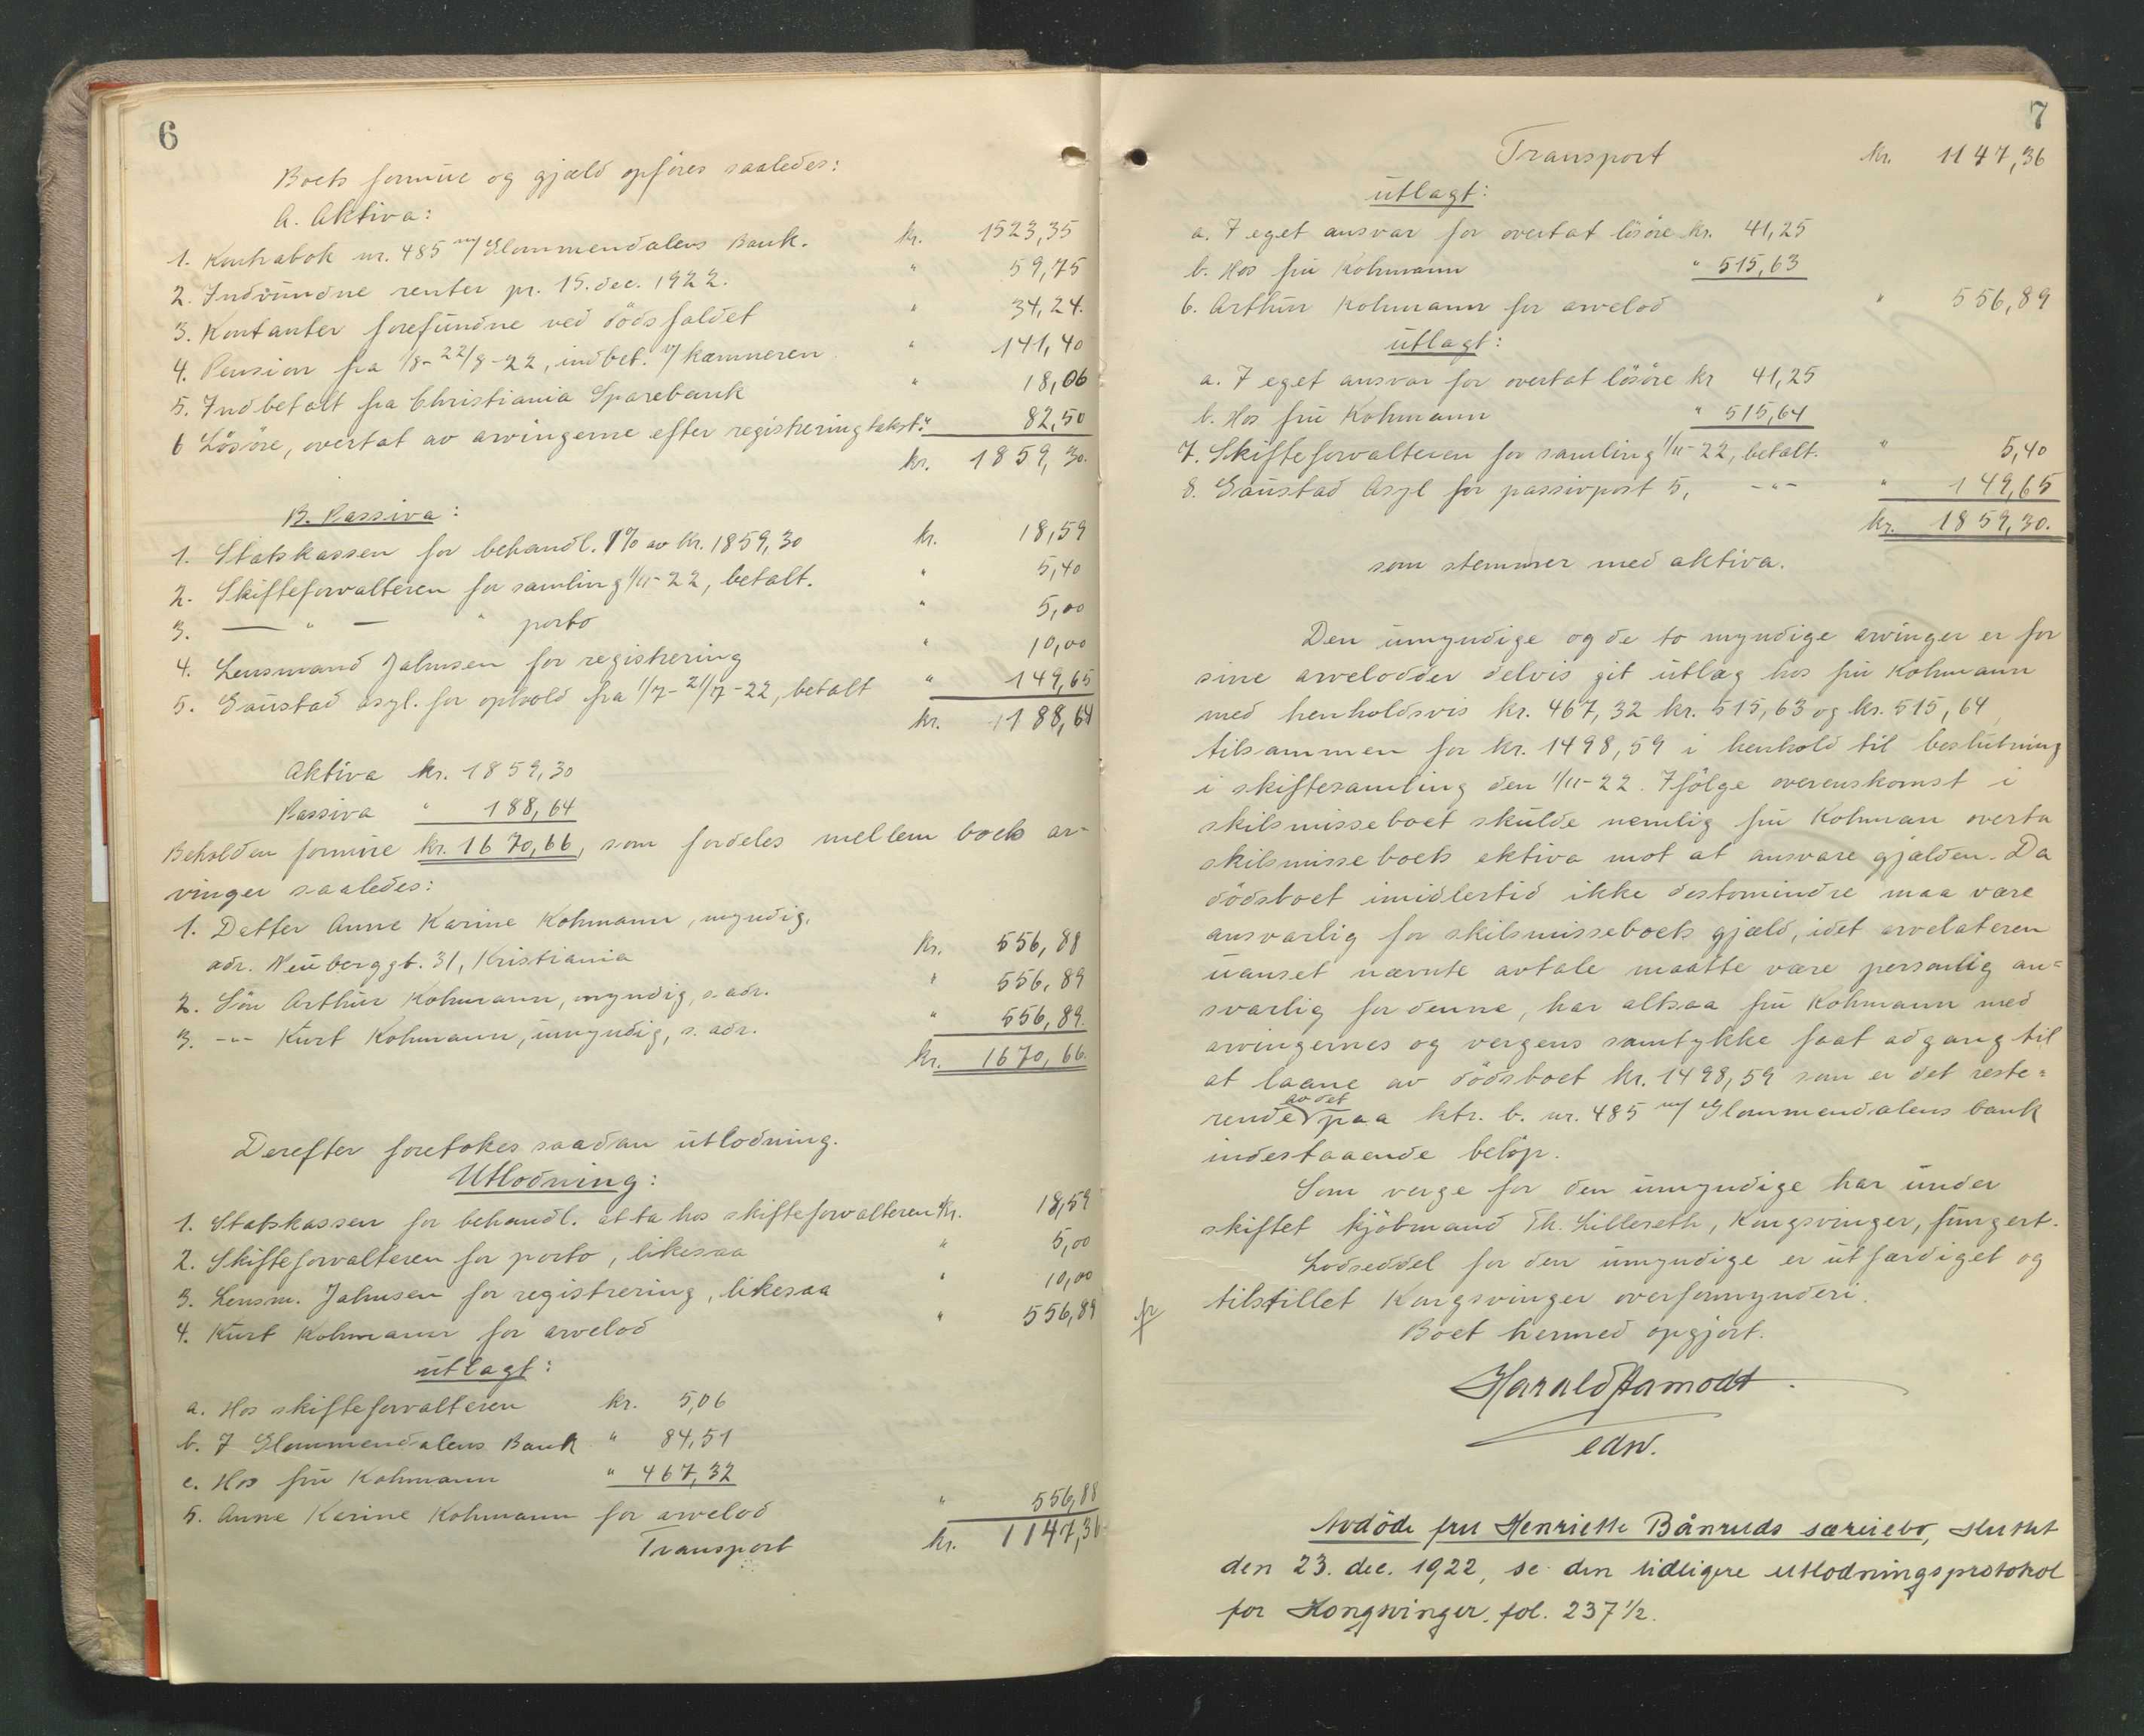 6
Boets formue og gjæld opföres saaledes:
A. Aktiva:
1. Kontrabok nr. 485 m/ Glommendalens Bank. kr. 1523,35
2. Indvundne renter pr. 15. dec. 1922. " 59,75
3. Kontanter forefundne ved dödsfaldet " 34,24.
4. Pension fra 1/8-22/8-22, indbet. v/ kæmneren " 141,40
5. Indbetalt fra Christiania Sparebank " 18,06
6 Lösöre, overtat av arvingerne efter registreringtakst. " 82,50
kr. 1859,30.
B. Passiva:
1. Statskassen for behandl. 1% av kr. 1859,30 kr. 18,59
2. Skifteforvalteren for samling 1/11-22, betalt. " 5,40
3. — " — " porto " 5,00
4. Lensmand Jahnsen for registrering " 10,00
5. Gaustad asyl. for ophold fra 1/7-21/7-22, betalt " 149,65
kr. 188,64
Aktiva kr. 1859,30
Passiva " 188,64
Beholden formue kr. 1670,66, som fordeles mellem boets ar-
vinger saaledes:
1. Datter Anne Karine Kohmann, myndig,
adr. Neuberggt. 31, Kristiania kr. 556,88
2. Sön Arthur Kohmann, myndig, s. adr. " 556,89
3. -"- Kurt Kohmann, umyndig, s. adr. " 556,89.
kr. 1670,66.
Derefter foretokes saadan utlodning.
Utlodning:
1. Statskassen for behandl. at ta hos skifteforvalteren kr. 18,59
2. Skifteforvalteren for porto, likesaa " 5,00
3. Lensm. Jahnsen for registrering, likesaa " 10,00
4. Kurt Kohmann for arvelod " 556,89
utlagt:
a. Hos skifteforvalteren kr. 5,06
b. I Glommendalens Bank " 84,51
c. Hos fru Kohmann " 467,32
5. Anne Karine Kohmann for arvelod " 556,88
Transport kr. 1147,36
7
Transport kr. 1147,36
utlagt:
a. I eget ansvar for overtat lösöre kr. 41,25
b. Hos fru Kohmann " 515,63
6. Arthur Kohmann for arvelod " 556,89
utlagt:
a. I eget ansvar for overtat lösöre kr 41,25
b. Hos fru Kohmann " 515,64
7. Skifteforvalteren for samling 1/11-22, betalt. " 5,40
8. Gaustad Asyl for passivpost 5, -"- " 149,65
kr. 1859,30.
som stemmer med aktiva.
Den umyndige og de to myndige arvinger er for
sine arvelodder delvis git utlæg hos fru Kohmann
med henholdsvis kr. 467,32 kr. 515,63 og kr. 515,64,
tilsammen for kr. 1498,59 i henhold til beslutning
i skiftesamling den 1/11-22. Ifölge overenskomst i
skilsmisseboet skulde nemlig fru Kohman overta
skilsmisseboets aktiva mot at ansvare gjælden. Da
dödsboet imidlertid ikke destomindre maa være
ansvarlig for skilsmisseboets gjæld, idet arvelateren
uanset nævnte avtale maatte være personlig an=
svarlig for denne, har altsaa fru Kohmann med
arvingernes og vergens samtykke faat adgang til
at laane av dödsboet kr. 1498,59 som er det reste=
rende av det paa ktr. b. nr. 485 m/ Glommendalens bank
indestaaende belöp.
Som verge for den umyndige har under
skiftet kjöbmand Th. Lillereth, Kongsvinger, fungert.
Lodseddel for den umyndige er utfærdiget og
tilstillet Kongsvinger overformynderi.
Boet hermed opgjort.
Harald Aamodt.
edsv.
Avdöde fru Henriette Bånruds særeiebo, sluttet
den 23. dec. 1922, se den tidligere utlodningsprotokol
for Kongsvinger, fol. 237 1/2.